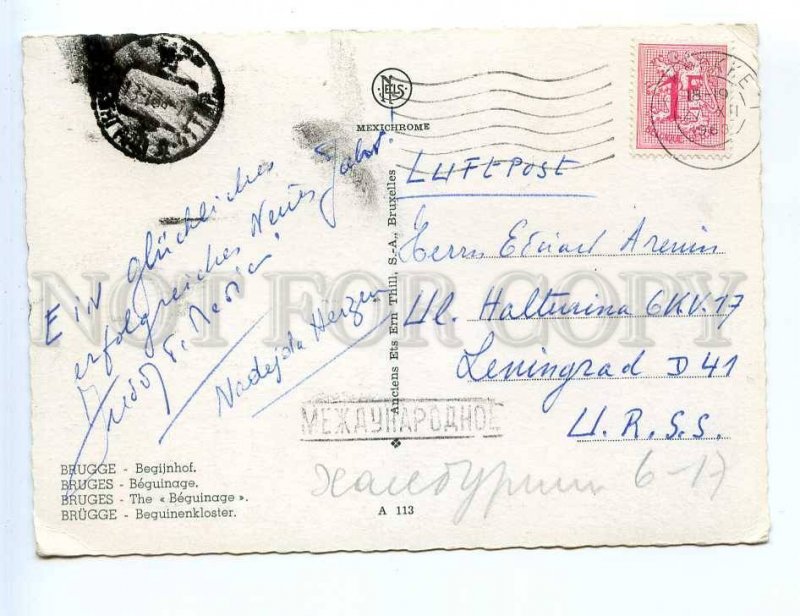 Ein glückliches
erfolgreiches Neues Jahr!
Nadejda Herzen
BRUGGE - Begijnhof.
BRUGES - Béguinage.
BRUGES - The « Béguinage ».
BRÜGGE - Beguinenkloster.
NELS
MEXICHROME
Anciens Ets Ern Thill, S.-A., Bruxelles
A 113
1F
18-19
XII
LUFTPOST
Herrn Eduard Arenin
Ul. Halturina 6 KV. 17
Leningrad D 41
U.R.S.S.
МЕЖДУНАРОДНОЕ
6-17
NOT FOR COPY